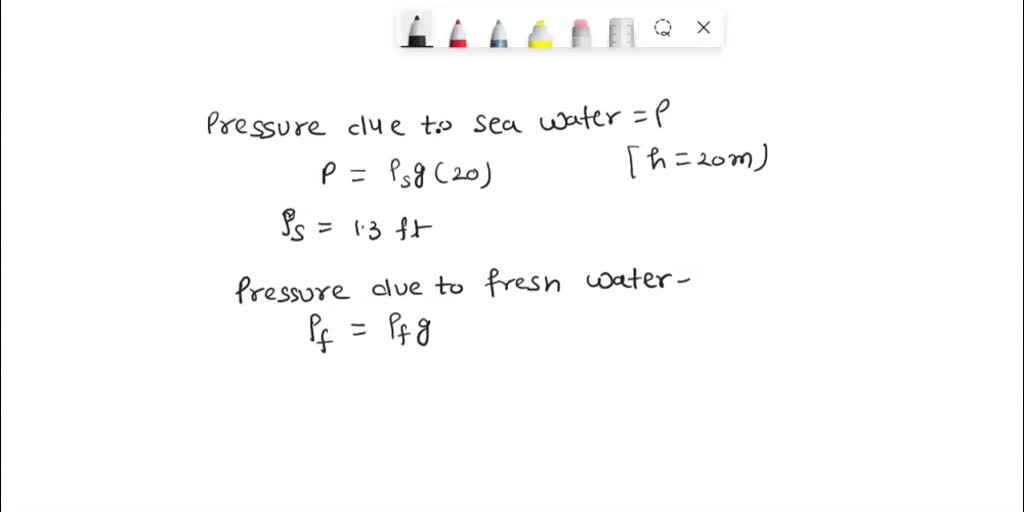 Pressure due to sea water = P
P = ρsg(20) [h = 20m)
ρs = 1.3 ft
Pressure due to fresh water -
Pf = ρfg